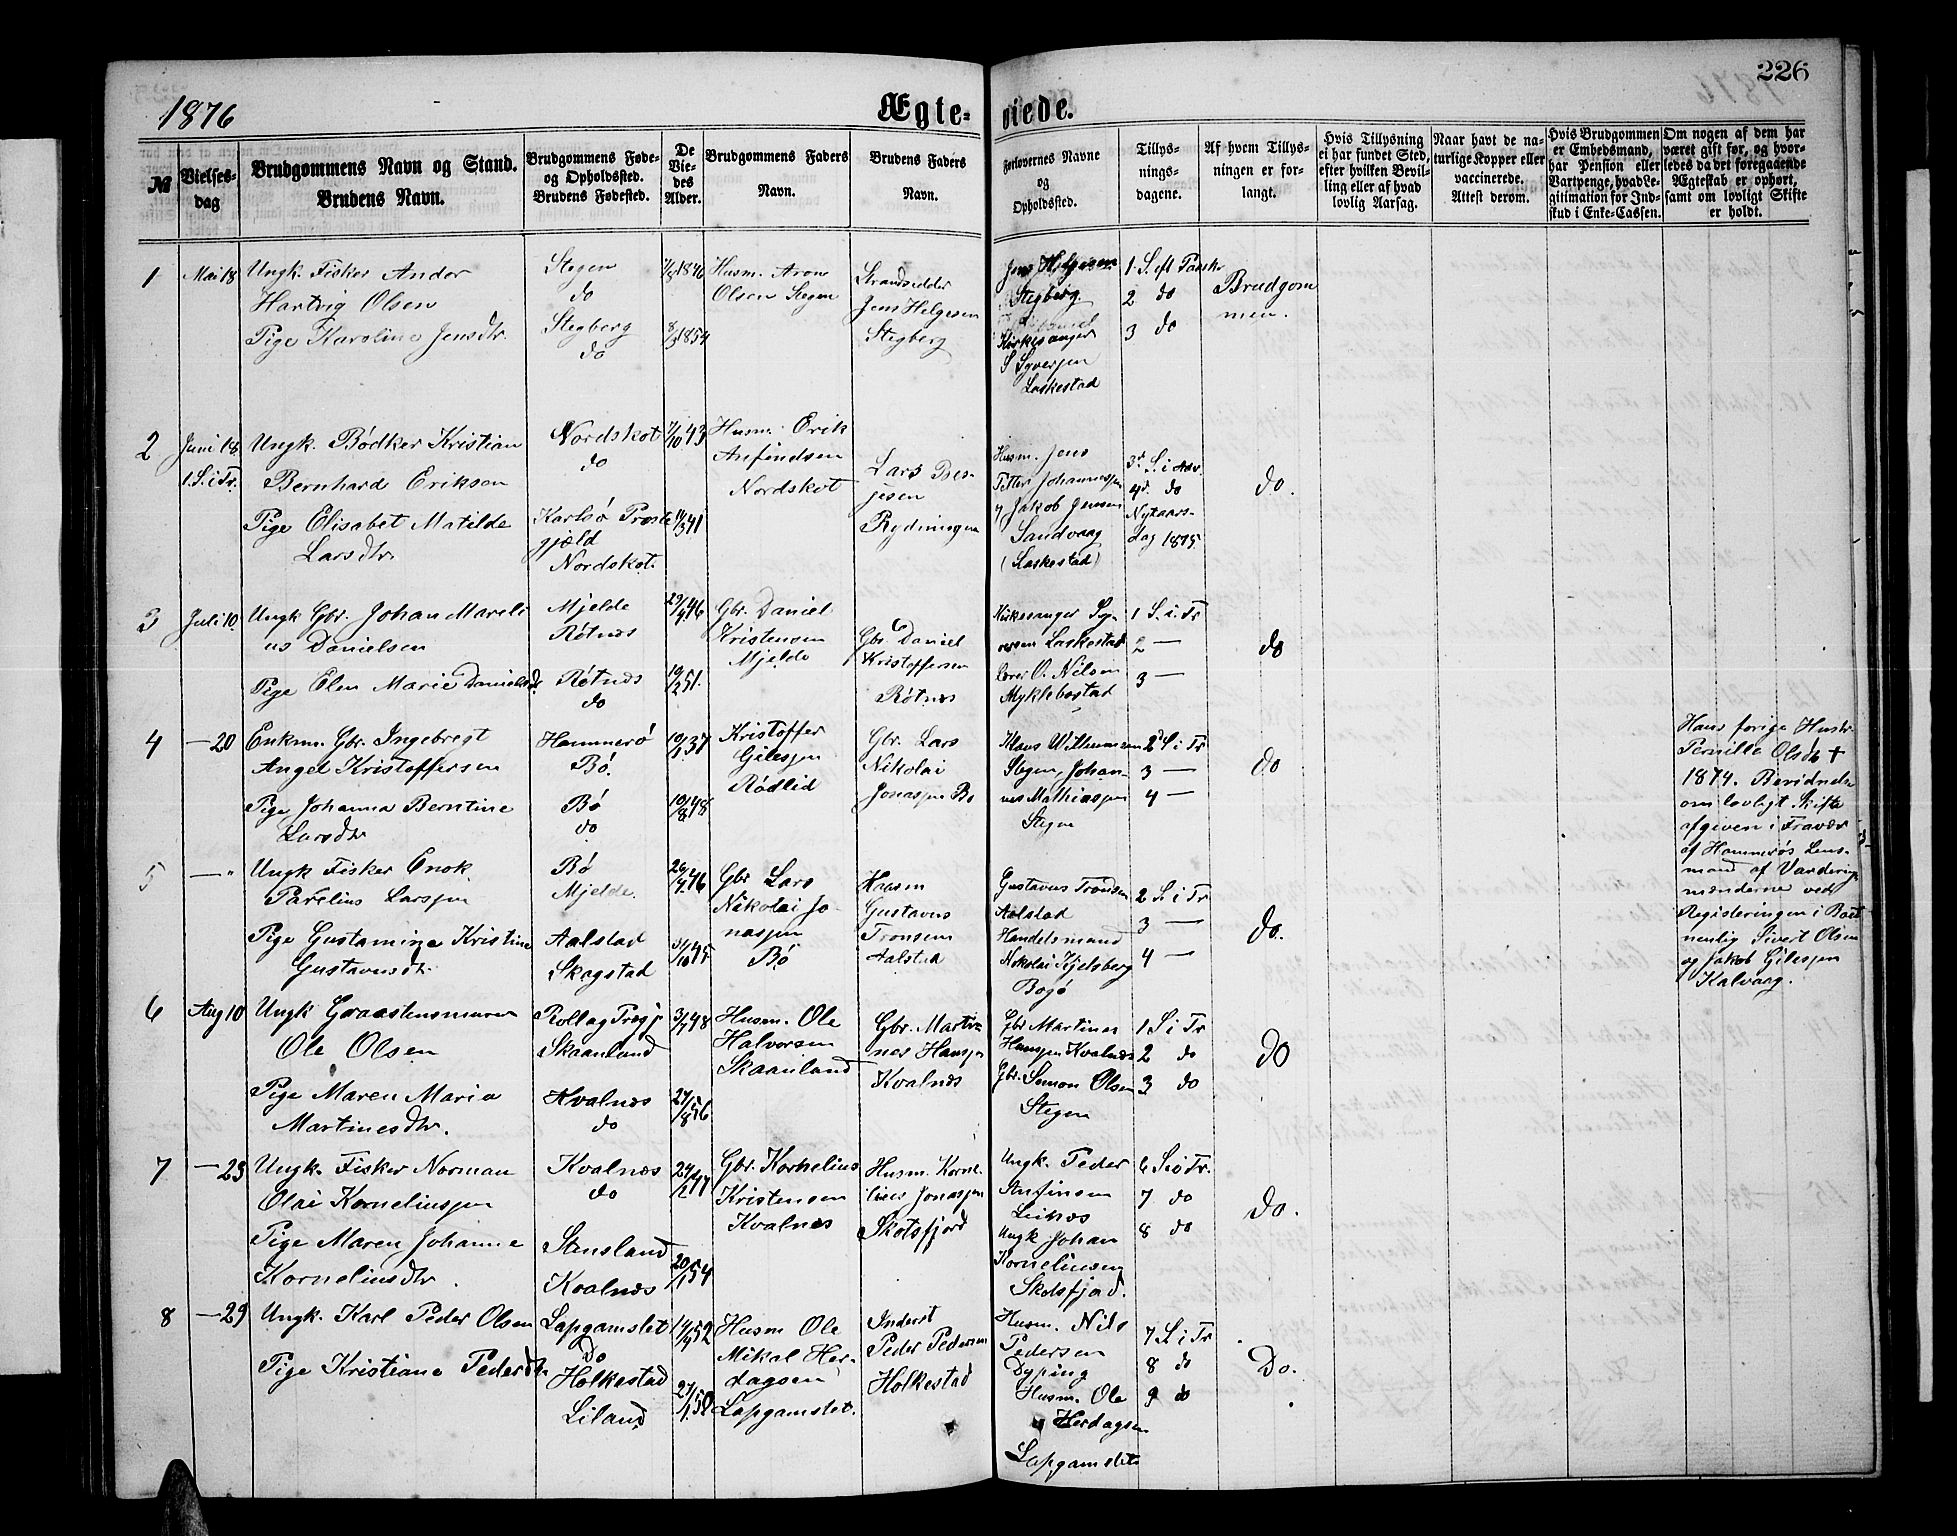 226
1876
Ægte-
viede.
№
Vielses-
dag
Brudgommens Navn og Stand.
Brudens Navn.
Brudgommens Føde-
og Opholdssted.
Brudens Fødested.
De
Vie-
des
Alder.
Brudgommens Faders
Navn.
Brudens Faders
Navn.
Forlovernes Navne
og
Opholdssted.
Tillys-
nings-
dagene.
Af hvem Tillys-
ningen er for-
langt.
Hvis Tillysning
ei har fundet Sted,
efter hvilken Bevil-
ling eller af hvad
lovlig Aarsag.
Naar havt de na-
turlige Kopper eller
vaccinerede.
Attest derom.
Hvis Brudgommen
er Embedsmand,
har Pension eller
Vartpenge, hvad Le-
gitimation for Ind-
skud i Enke-Cassen.
Om nogen af dem har
været gift før, og hvor-
ledes da det foregaaende
Ægteskab er ophørt,
samt om lovligt Skifte
er holdt.
1
Mai 18
Ungk. Fisker Andor
Hartvig Olsen
Pige Karoline Jensdtr.
Stegen
do
Stegberg
do
1846
8/3 1854
Husm. Aron
Olsen Stegen
Strandsidder
Jens Helgesen
Stegberg
Jens Helgesen
Stegberg
Kirkesanger
S Syversen
Laskestad
1 S. eft Paaske
2 do
3 do
Brudgom
men.
2
Juni 18
1. S. i Tr.
Ungk. Bødker Kristian
Bernhard Eriksen
Pige Elisabet Matilde
Larsdtr.
Nordskot
do
Karlsø Præste
gjæld
Nordskot.
1/10 43
14/3 41
Husm. Erik
Anfindsen
Nordskot
Lars Bes-
jesen
Rydningen
Husm. Jens
Petter Johannesjen
Jakob Jensen
Sandvaag
(Laskestad)
3d S. i Adv.
4d do
Nytaars-
dag 1875.
do.
3
Juli 10.
Ungk Gbr. Johan Mareli
us Danielsen
Pige Elen Marie Danielsdtr
Mjelde
Røtnes
Røtnes
do
29/9 46
19/2 51.
Gbr. Daniel
Kristensen
Mjelde
Gbr. Daniel
Kristoffersen
Røtnes
Kirkesanger Sy-
versen Laskestad
Lærer O. Nilsen
Myklebostad
1 S. i Tr
2 —
3 —
do
4
— 20
Enkm. Gbr. Ingebregt
Angel Kristoffersen
Pige Johanna Berntine
Larsdtr
Hammerø
Bø.
Bø
do
19/1 37
19/8 48
Kristoffer
Gilesjen
Rødlid
Gbr. Lars
Nikolai
Jonasjen Bø
Klaus Willumsen
Stegen, Johan-
nes Mathiasjen
Stegen
2d S i Tr
3 —
4 —
do
Hans forige Hustr
Pernille Olsdtr †
1874.
om lovligt Skifte
afgiven i Fravær
af Hammerøs Lens-
mand af Vurderings
mændene ved
Registeringen i Boet
nemlig Sivert Olsen
og Jakob Gilesjen
Kalvaag.
5
— "
Ungk Fisker Enok
Parelius Larsjen
Pige Gustamine Kristine
Gustavusdtr.
Bø
Mjelde.
Aalstad
Skagstad
26/7 46
Gbr Lars
Nikolai Jo-
nasjen
Bø
Husm
Gustavus
Tronsen
Aalstad
Gustavus Tronsen
Aalstad
Handelsmand
Nikolai Kjelsberg
Bogø
2 S. i Tr
3 —
4 —
do.
6
Aug 10
Ungk Graastensmurer
Ole Olsen
Pige Maren Maria
Martinesdtr.
Rollag Præg.
Skaanland
Kvalnæs
do
3/7 48
27/8 56
Husm. Ole
Halvorsen
Skaanland
Gbr. Marti-
nes Hansjen
Kvalnæs
Gbr Martines
Hansjen Kvalnæs
Gbr. Simon Olsen
Stegen
1 S i Tr
2 do
3 do
do
7
— 23
Ungk. Fisker Norman
Olai Korneliusjen
Pige Maren Johanne
Korneliusdtr.
Kvalnæs
do
Stensland
Kvalnæs
24/2 47
20/1 54
Gbr. Kornelius
Kristensen
Kvalnæs
Husm. Korne-
lius Jonasjen
Skotsfjord
Ungk. Peder
Anfinsen
Leiknes
Ungk Johan
Korneliusen
Skotsfjord.
6 S i Tr.
7 do
8 do
do.
8
— 29
Ungk. Karl Peder Olsen
Pige Kristiane Pedersdtr.
Lapgamslet
Do
Holkestad
Liland
14/9 52
27/1 50
Husm Ole
Mikal Her-
dagsen
Lapgamslet.
Inderst
Peder Pedersen
Holkestad
Husm. Nils
Pedersen
Dyping
Husm. Ole
Herdagsen
Lapgamslet
7 S. i Tr
8 do
9 do
Do.